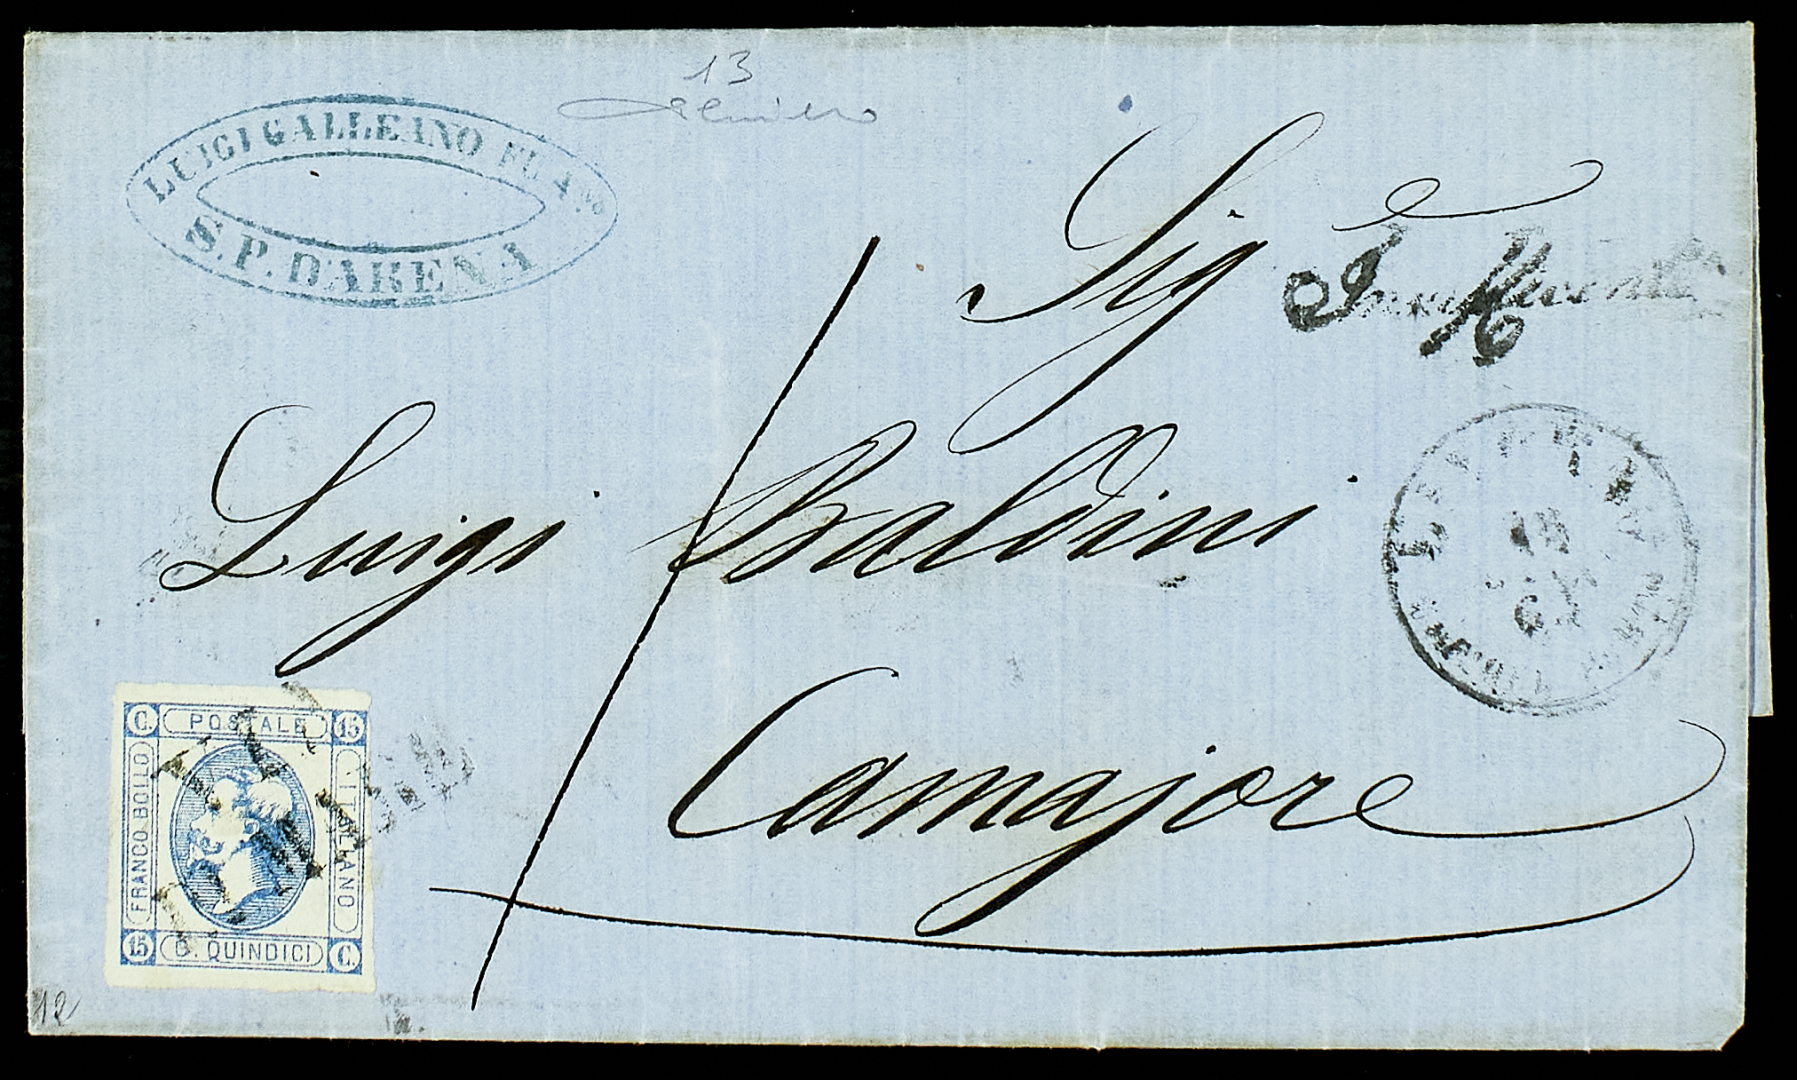 13
LUIGI GALLEANO FU A.
S. P. D'ARENA
Sig.
Insufficiente
Luigi Baldini
18
Camajore
C. POSTALE 15
FRANCO BOLLO
ITALIANO
15 C. QUINDICI C.
12